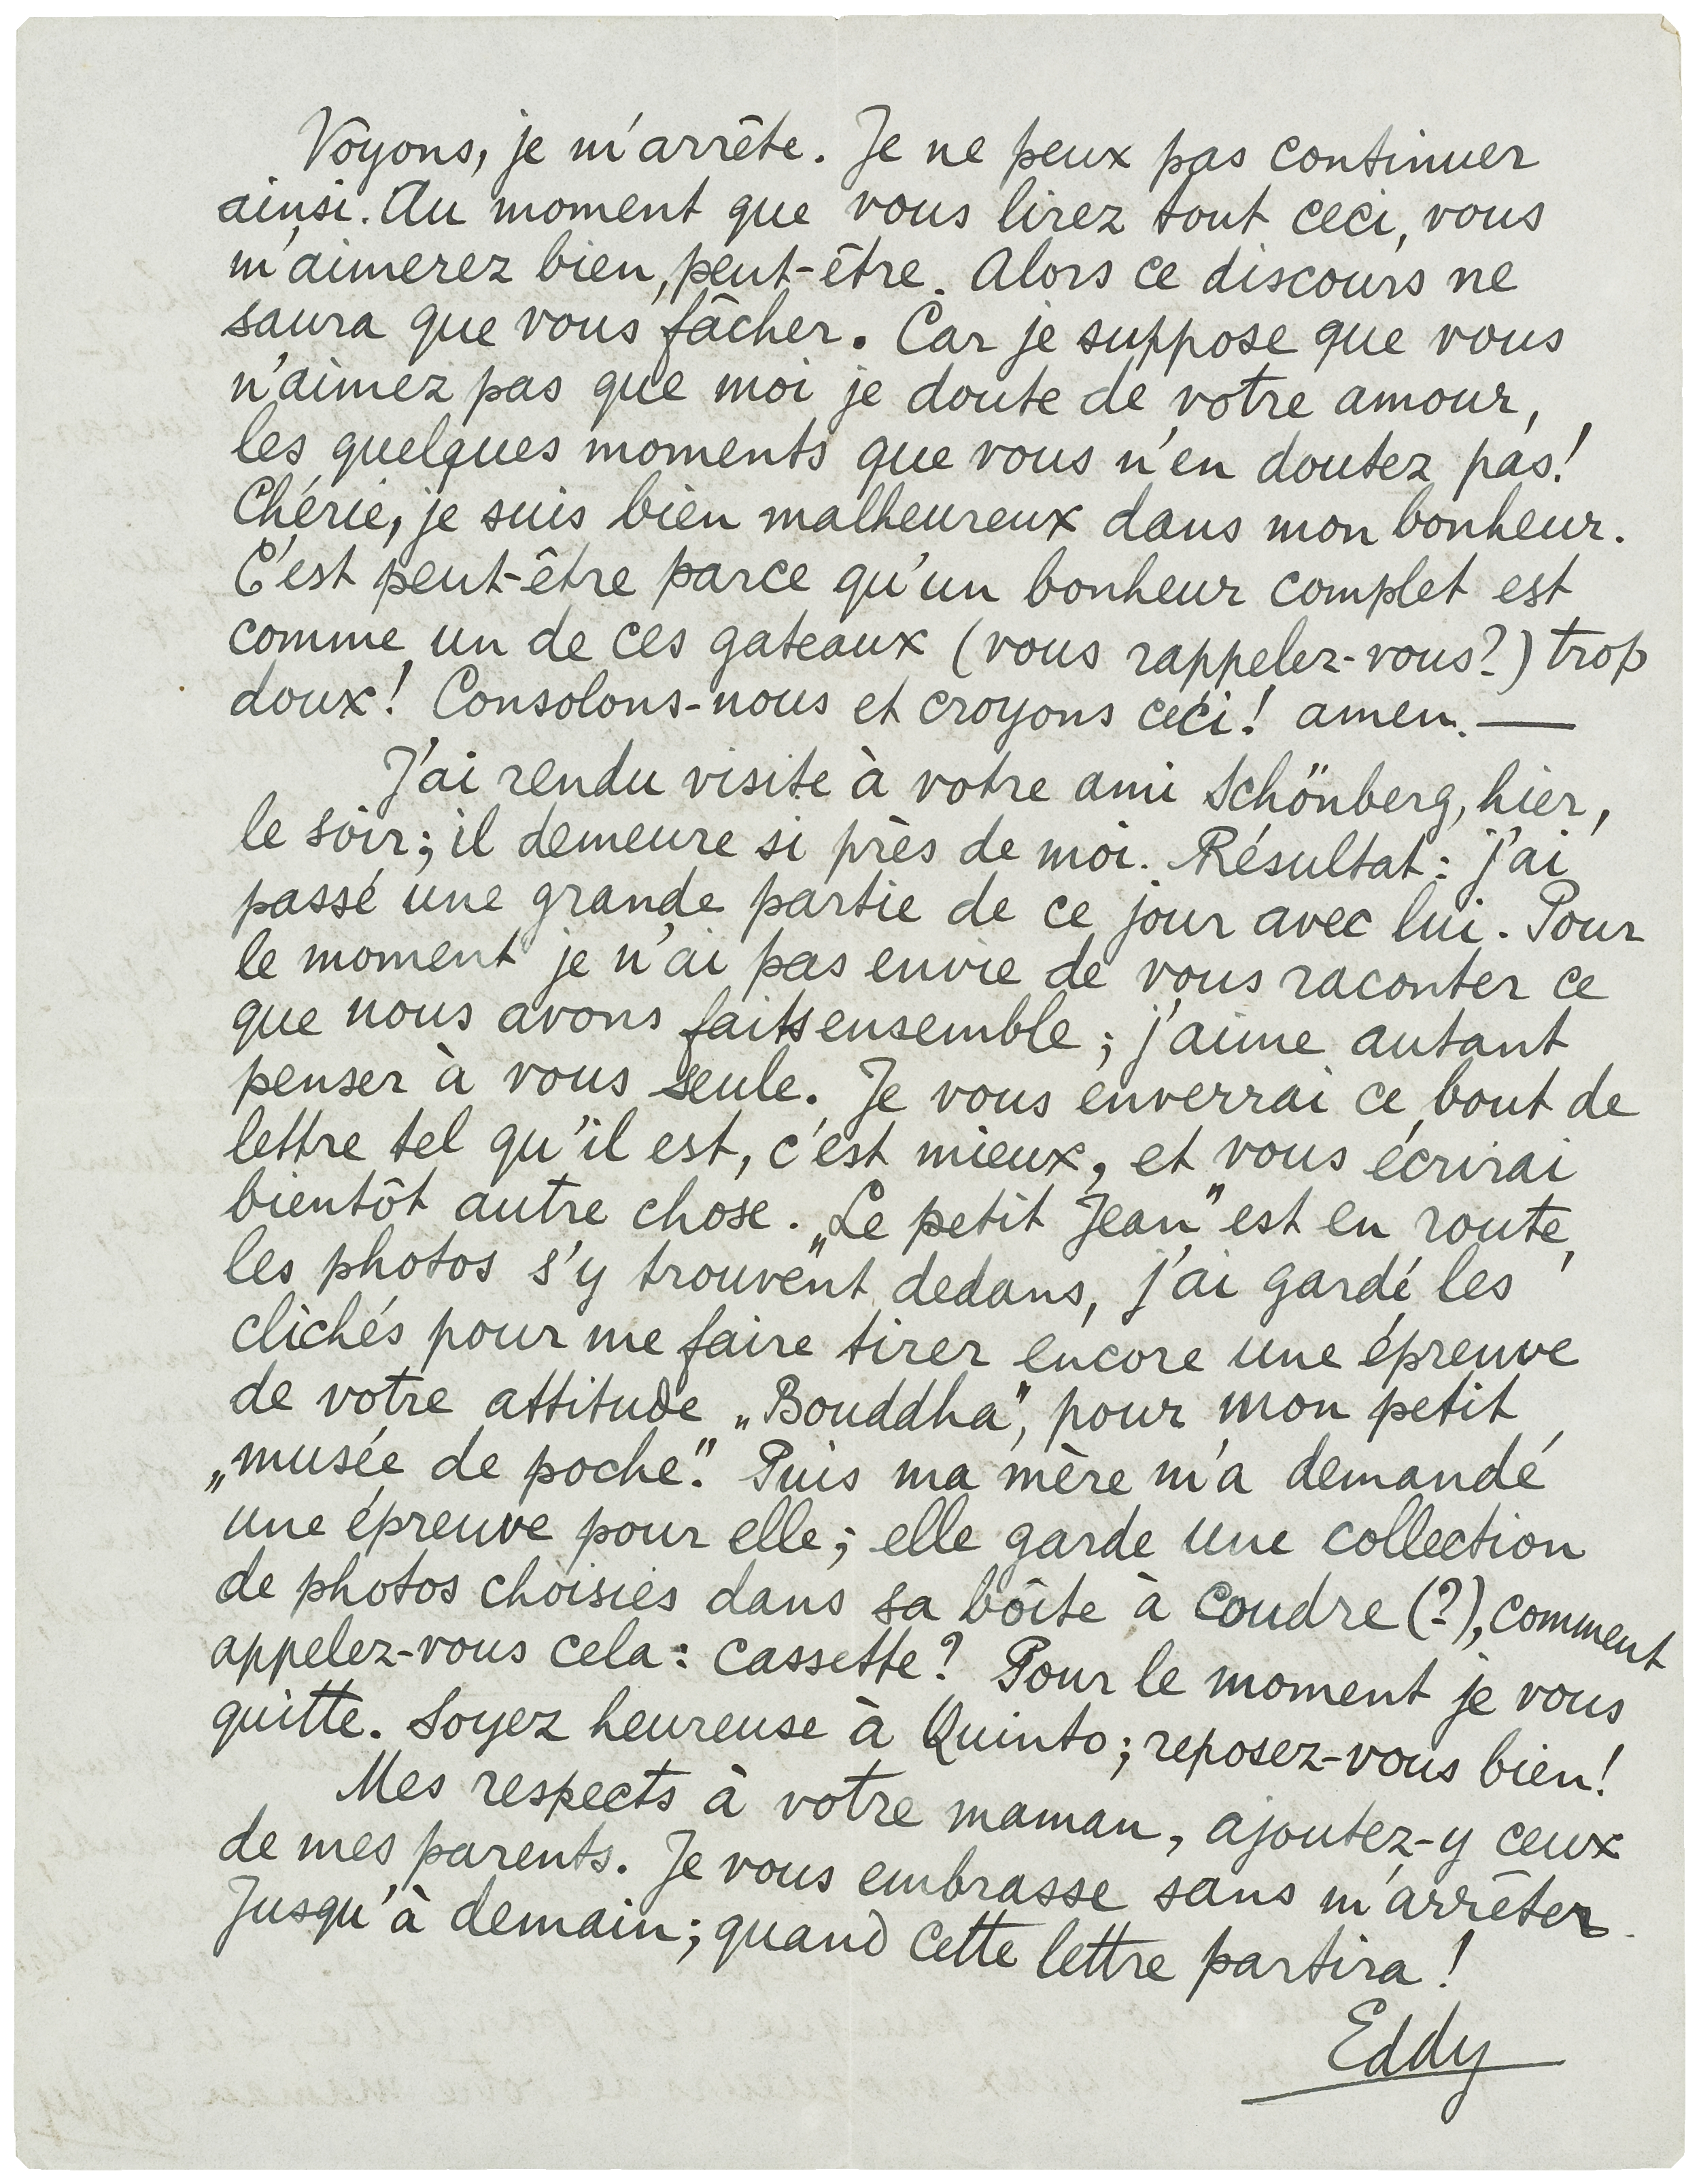 Voyons, je m'arrête. Je ne peux pas continuer
ainsi. Au moment que vous lirez tout ceci, vous
m'aimerez bien, peut-être. Alors ce discours ne
saura que vous fâcher. Car je suppose que vous
n'aimez pas que moi je doute de votre amour,
les quelques moments que vous n'en doutez pas!
Chérie, je suis bien malheureux dans mon bonheur.
C'est peut-être parce qu'un bonheur complet est
comme un de ces gateaux (vous rappelez-vous?) trop
doux! Consolons-nous et croyons ceci! amen. —
J'ai rendu visite à votre ami Schönberg, hier,
le soir; il demeure si près de moi. Résultat: j'ai
passé une grande partie de ce jour avec lui. Pour
le moment je n'ai pas envie de vous raconter ce
que nous avons faits ensemble; j'aime autant
penser à vous seule. Je vous enverrai ce bout de
lettre tel qu'il est, c'est mieux, et vous écrirai
bientôt autre chose. „Le petit Jean" est en route,
les photos s'y trouvent dedans, j'ai gardé les
clichés pour me faire tirer encore une épreuve
de votre attitude „Bouddha", pour mon petit
„musée de poche". Puis ma mère m'a demandé
une épreuve pour elle; elle garde une collection
de photos choisies dans sa bôite à coudre (?), comment
appelez-vous cela: cassette? Pour le moment je vous
quitte. Soyez heureuse à Quinto; reposez-vous bien!
Mes respects à votre maman, ajoutez-y ceux
de mes parents. Je vous embrasse sans m'arrêter.
Jusqu'à demain; quand cette lettre partira!
Eddy